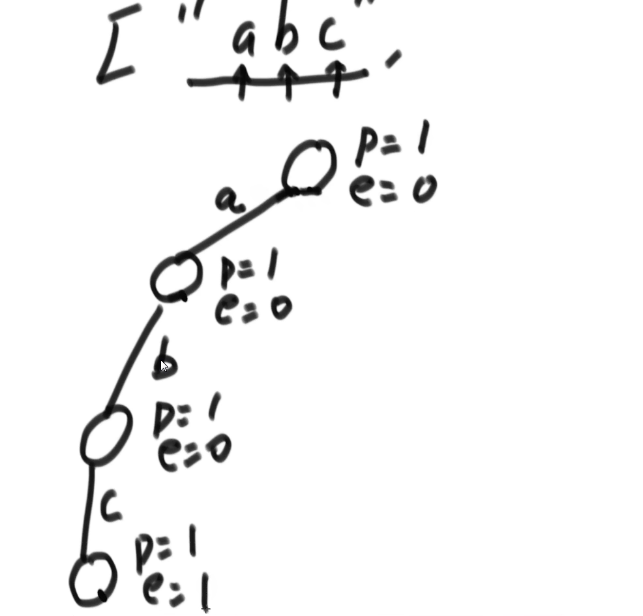 ["abc",
p=1
e=0
a
p=1
e=0
b
p=1
e=0
c
p=1
e=1